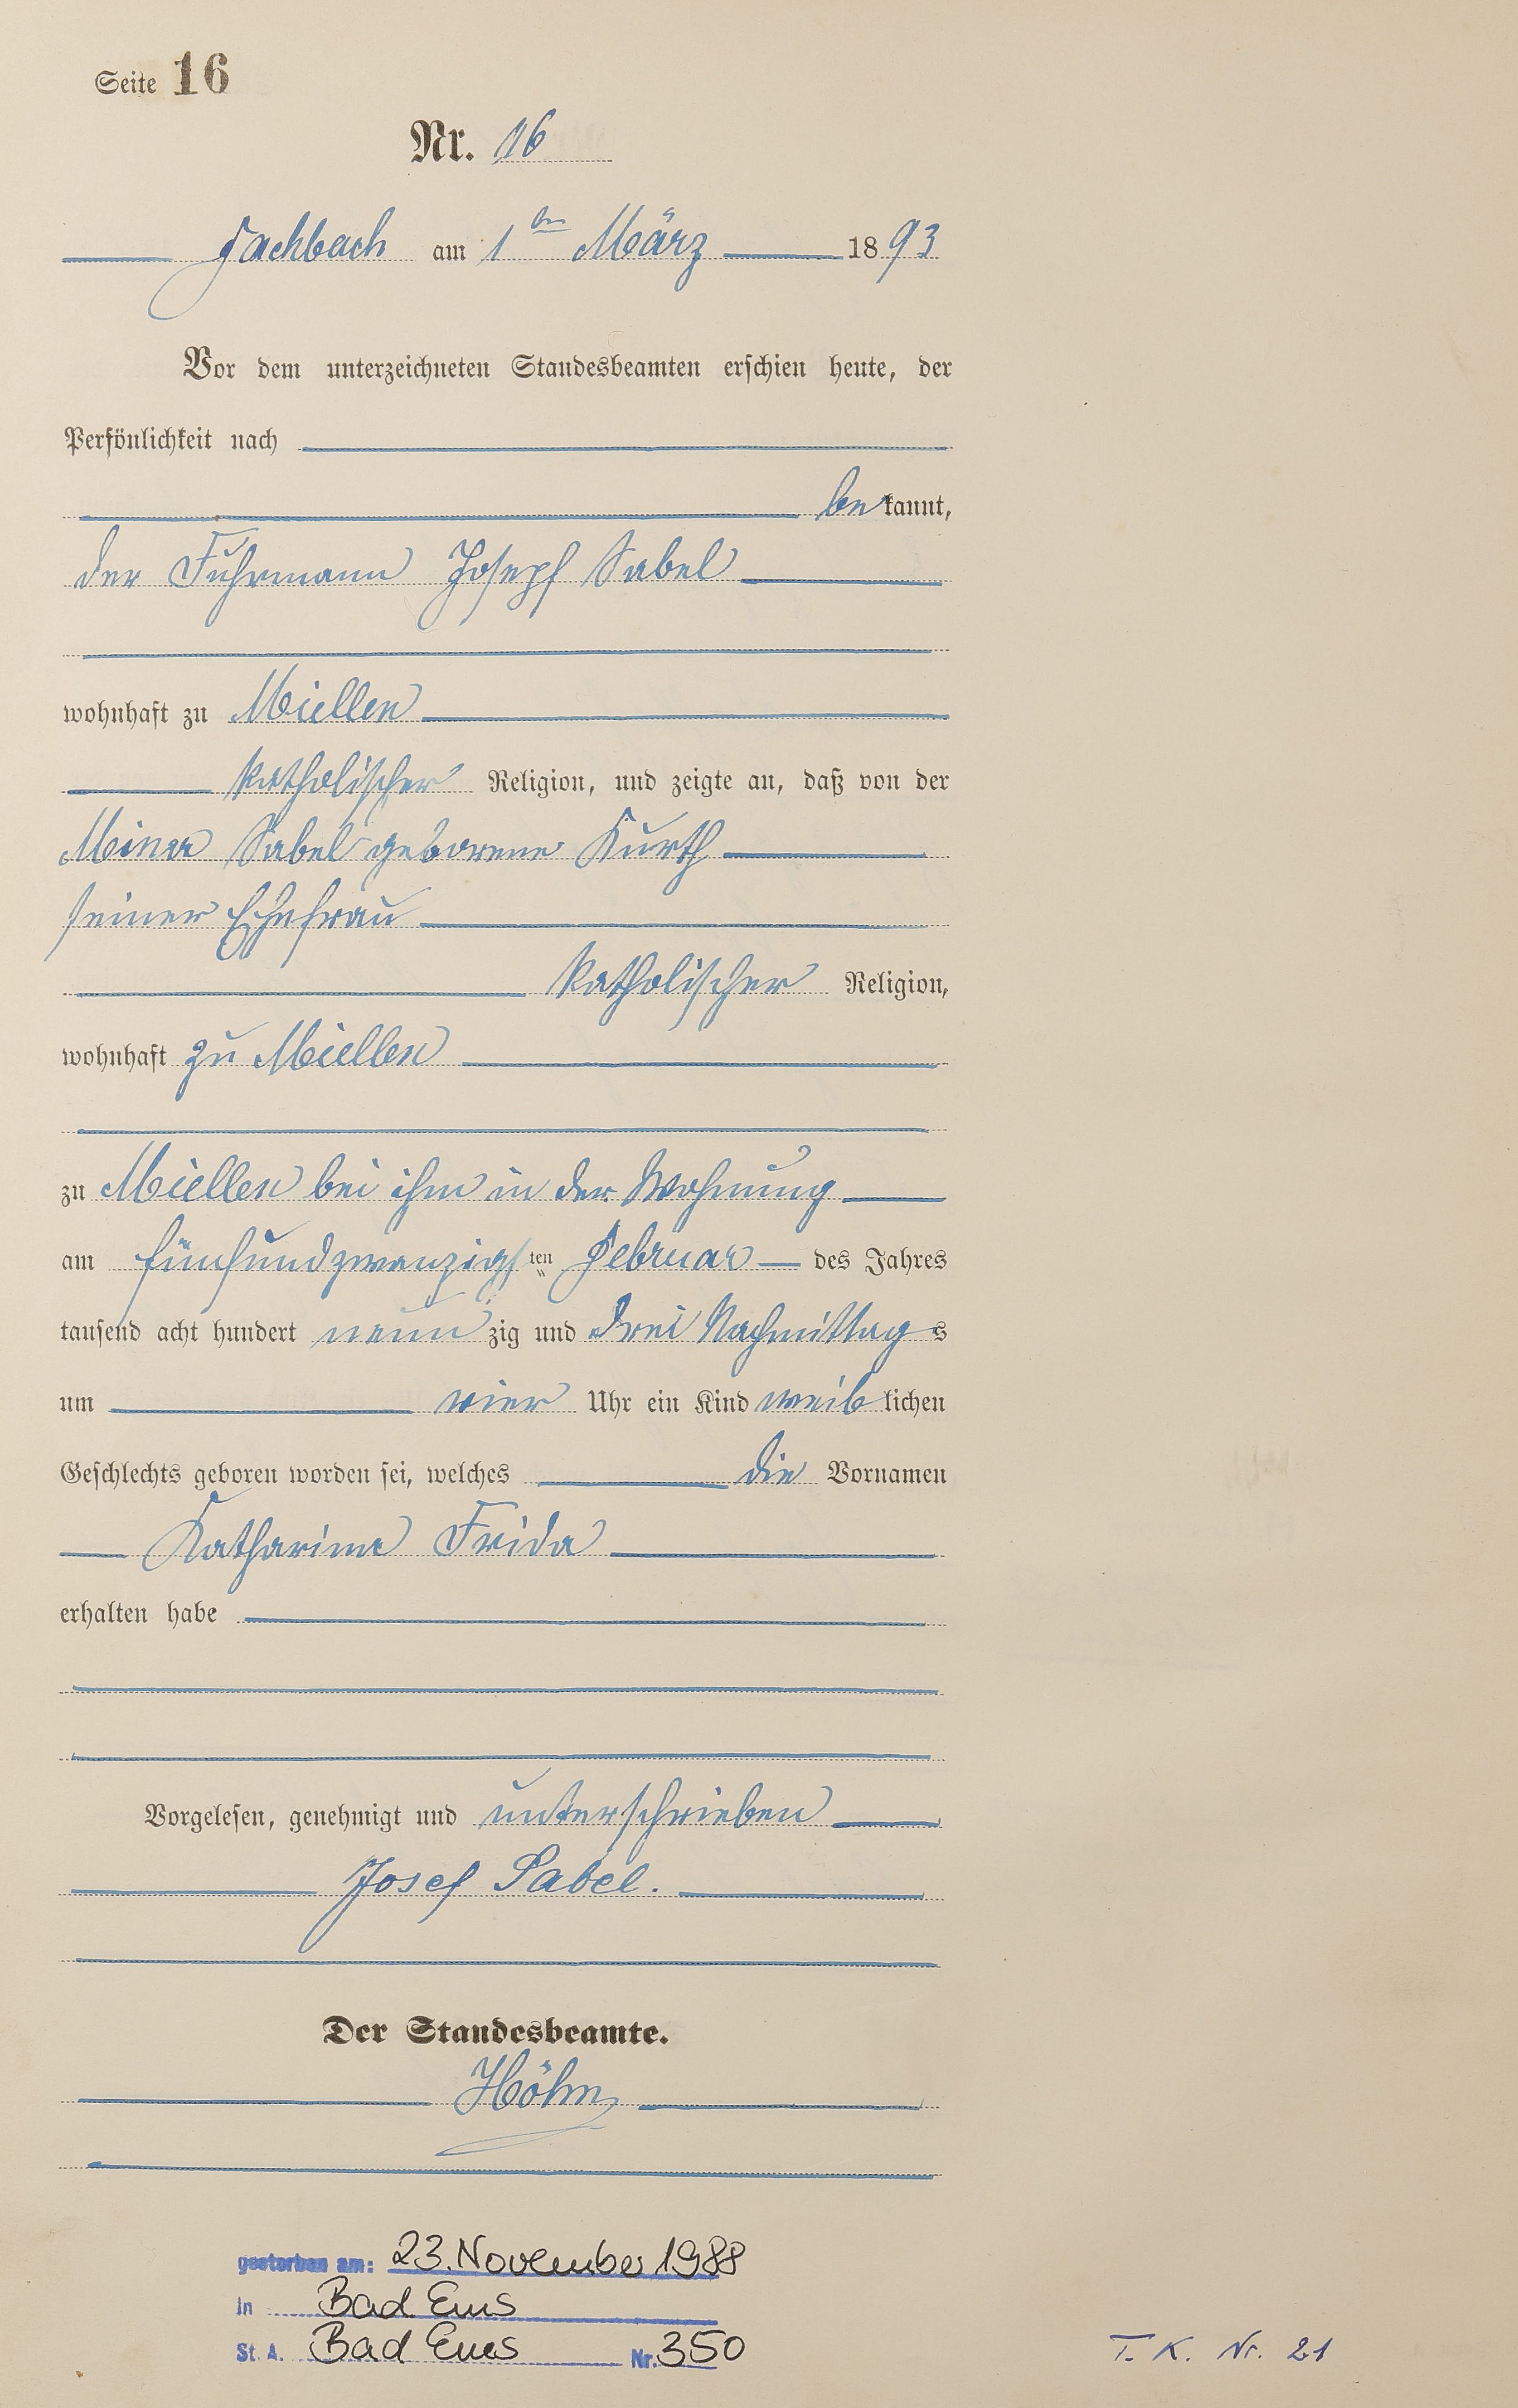 Seite 16
Nr. 16
Fachbach am 1ten März 1893
Vor dem unterzeichneten Standesbeamten erschien heute, der
Persönlichkeit nach
bekannt,
der Fuhrmann Joseph Sabel
wohnhaft zu Miellen
katholischer Religion, und zeigte an, daß von der
Mina Sabel geborene Kurth
seiner Ehefrau
katholischer Religion,
wohnhaft zu Miellen
zu Miellen bei ihm in der Wohnung
am fünfundzwanzigsten Februar des Jahres
tausend acht hundert neunzig und drei Nachmittags
um vier Uhr ein Kind weiblichen
Geschlechts geboren worden sei, welches die Vornamen
Katharina Frida
erhalten habe
Vorgelesen, genehmigt und unterschrieben
Josef Sabel.
Der Standesbeamte.
Höhn
gestorben am: 23. November 1988
in Bad Ems
St. A. Bad Ems Nr. 350
T. K. Nr. 21